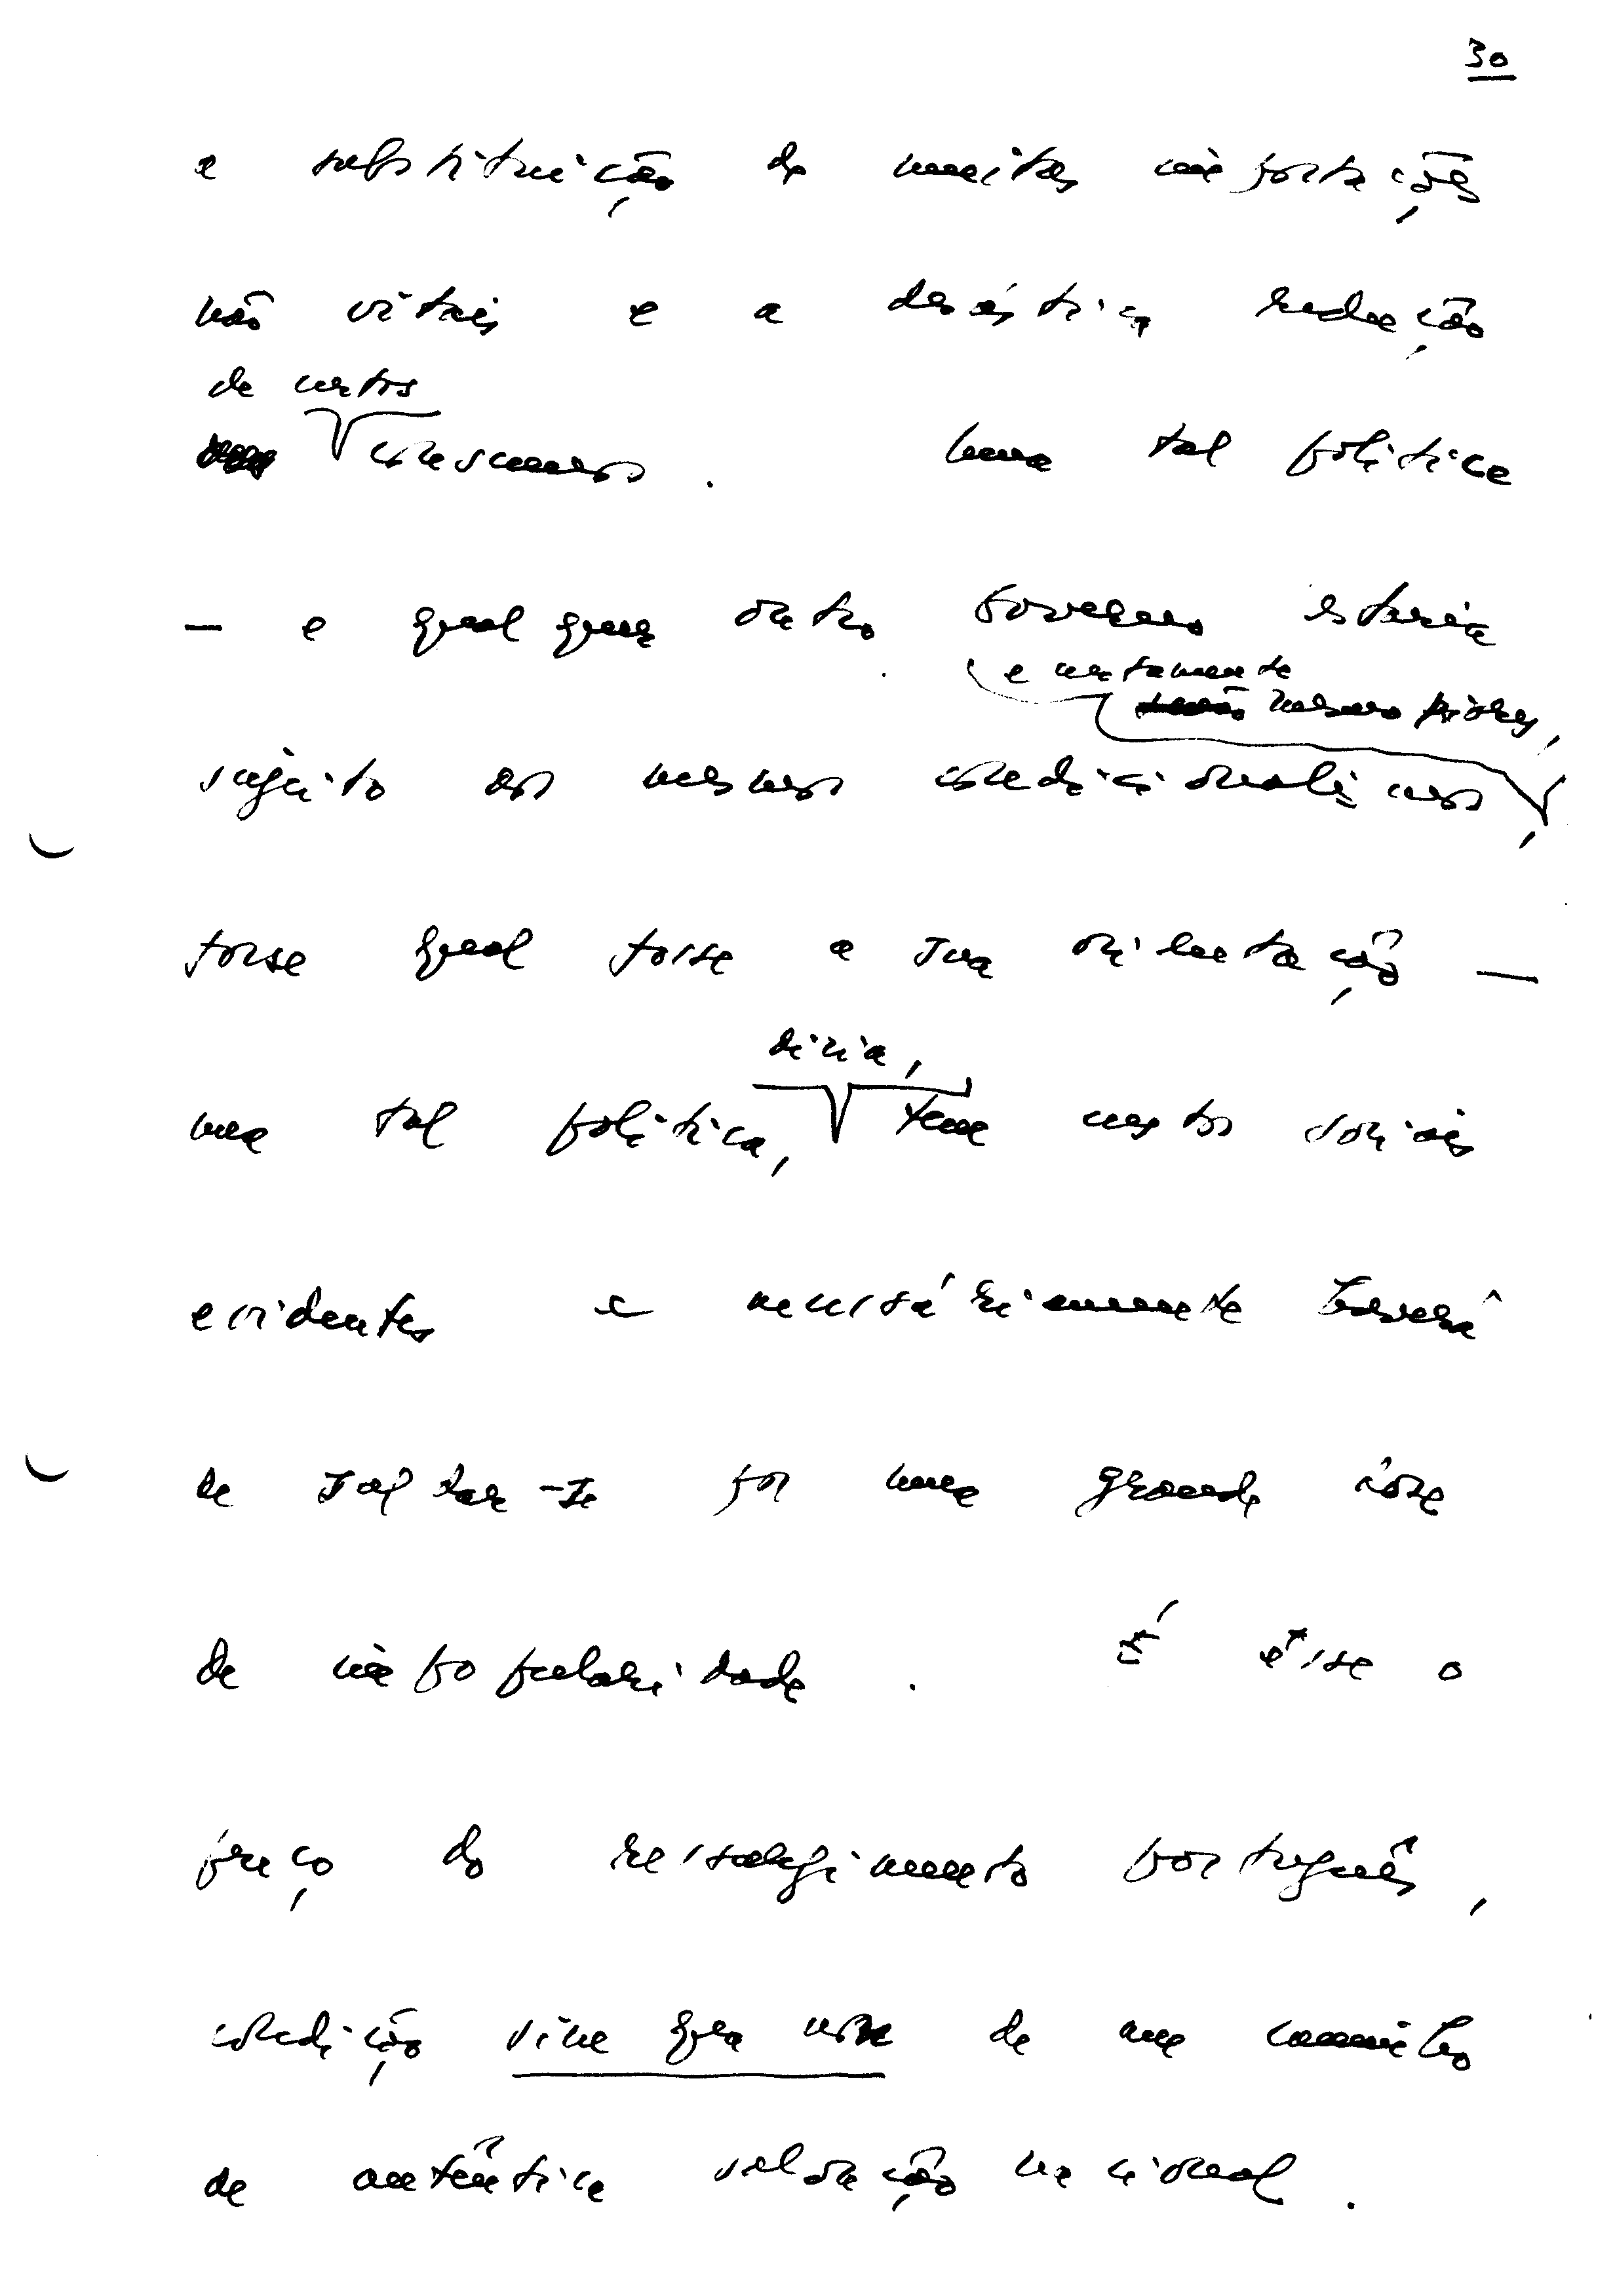 30
a substituição de muitas importações
não vitais e a drástica redução
de certos
consumos. Uma tal política
— e qualquer outro Governo estaria
e certamente
mesmo piores,
sujeito aos mesmos condicionalismos,
fosse qual fosse a sua orientação —
uma tal política,
diria,
tem custos sociais
evidentes e necessáriamente haverá
de saldar-se por uma grande
de impopularidade. É êsse o
preço do ressurgimento português,
condição sine qua non de um caminho
de autêntica salvação nacional.